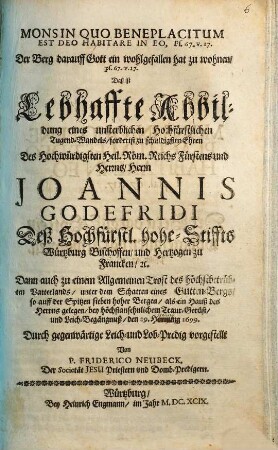 6
MONS IN QUO BENEPLACITUM
EST DEO HABITARE IN EO, Pſ. 67. v. 17.
Der Berg darauff Gott ein wohlgefallen hat zu wohnen/
pſ. 67. v. 17.
Daß iſt
Lebhaffte Abbil-
dung eines unſterblichen Hochfürſtlichen
Tugend-Wandels/
Des Hochwürdigſten Heil. Röm. Reichs Fürſtens und
Herrns/ Herrn
JOANNIS
GODEFRIDI
Deß Hochfürſtl. hohe-Stiffts
Würtzburg Biſchoffen/ und Hertzogen zu
Francken/ ꝛc.
Dann auch zu einem Allgemeinen Troſt des höchſtbetrüb-
ten Vatterlands/ unter dem Schatten eines Guttn-Bergs/
ſo auff der Spitzen ſieben hoher Bergen/ als ein Hauß des
Herrns gelegen/ bey höchſtanſehnlichem Traur-Gerüſt/
und Leich-Begängnuß/ den 19. 1699.
Durch gegenwärtige Leich- und Lob-Predig vorgeſtellt
Von
P. FRIDERICO NEUBECK,
Der Societät JESU Prieſtern und Domb-Predigern.
Würtzburg/
Bey Heinrich Engmann/ im Jahr M. DC. XCIX.